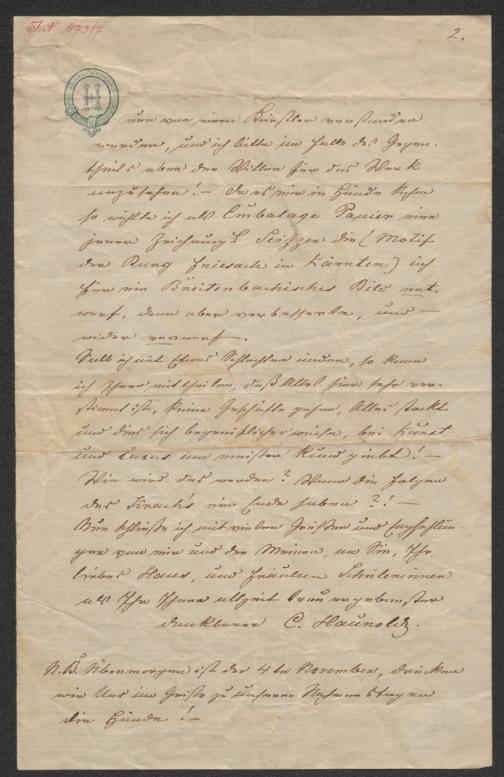 J.N. 47377
2.
H
nur von einem Künstler verstanden
werden, und ich bitte im Falle des Gegen-
theils eben den Willen für das Werk
anzusehen! — Da es mir in Hände kam
so wählte ich als Embalage Papier eine
jener Zeichnungs Scizzen die (Motif
der Burg Friesach in Kärnten) ich
für ein Breitenbachisches Bild ent-
warf, dann aber verbesserte, und —
wieder verwarf. —
Soll ich mit Etwas Schlechten enden, so kann
ich Ihnen mittheilen, daß Alles hier sehr ver-
stimmt ist, keine Geschäfte gehen, Alles stockt
und dies sich begreiflicher weise, bei Kunst
und Luxus am meisten kund giebt! —
Wie wird das werden? Wann die Folgen
des Krach's ein Ende haben?! —
Nun schließe ich mit vielen Grüßen und Empfehlun-
gen von mir und den Meinen, an Sie, Ihr
liebes Haus, und Fräulein Schülerinen
als Ihr Ihnen allzeit treu ergebenster
dankbarer C. Haunold.
N.B. Übermorgen ist der 4te November, drücken
wir Uns im Geiste zu unserem Namens Tagen
die Hände! —